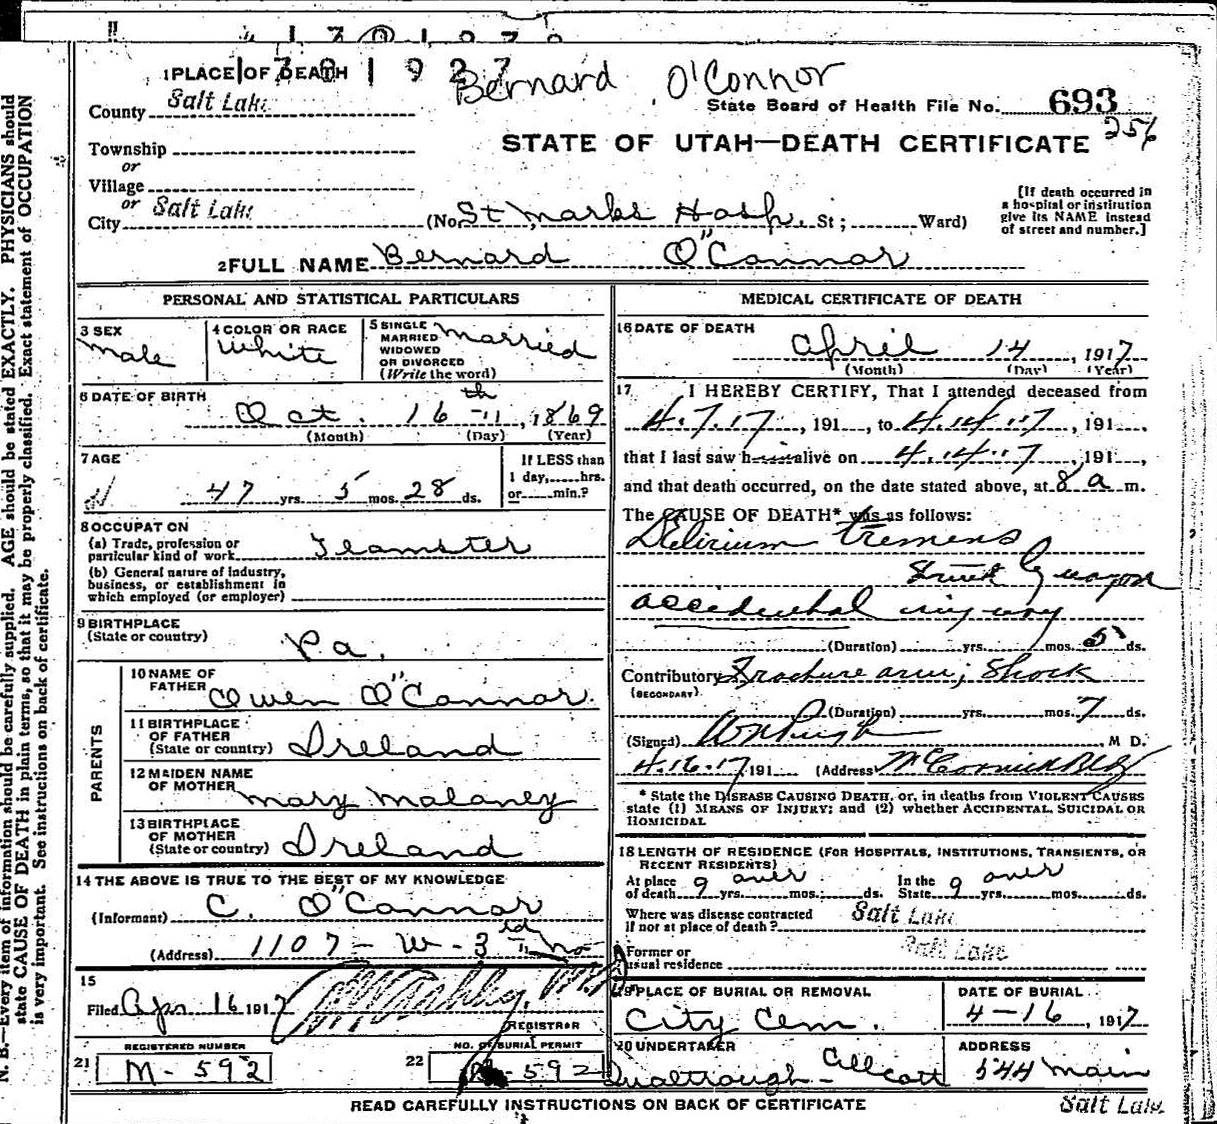 1701927
1 PLACE OF DEATH
Bernard O'Connor
County Salt Lake
State Board of Health File No. 693
256
Township
or
Village
or
City Salt Lake
STATE OF UTAH—DEATH CERTIFICATE
(No. St Marks Hosp. St; Ward)
[If death occurred in
a hospital or institution
give its NAME instead
of street and number.]
2 FULL NAME Bernard O'Connor
PERSONAL AND STATISTICAL PARTICULARS
3 SEX
Male
4 COLOR OR RACE
White
5 SINGLE
MARRIED
WIDOWED
OR DIVORCED
(Write the word)
Married
6 DATE OF BIRTH
Oct. 16th, 1869
(Month) (Day) (Year)
7 AGE
47 yrs. 5 mos. 28 ds.
If LESS than
1 day, hrs.
or min.?
8 OCCUPATION
(a) Trade, profession or
particular kind of work Teamster
(b) General nature of industry,
business, or establishment in
which employed (or employer)
9 BIRTHPLACE
(State or country)
Pa.
PARENTS
10 NAME OF
FATHER Owen O'Connor
11 BIRTHPLACE
OF FATHER
(State or country) Ireland
12 MAIDEN NAME
OF MOTHER
Mary Malaney
13 BIRTHPLACE
OF MOTHER
(State or country) Ireland
14 THE ABOVE IS TRUE TO THE BEST OF MY KNOWLEDGE
(Informant) C. O'Connor
(Address) 1107 - W - 3rd No
15
Filed Apr 16 1917
REGISTRAR
REGISTERED NUMBER
21 M-592
NO. OF BURIAL PERMIT
22 592
MEDICAL CERTIFICATE OF DEATH
16 DATE OF DEATH
April 14, 1917
(Month) (Day) (Year)
17 I HEREBY CERTIFY, That I attended deceased from
4.7.17, 191, to 4.14.17, 191,
that I last saw him alive on 4.14.17, 191,
and that death occurred, on the date stated above, at 8 a m.
The CAUSE OF DEATH* was as follows:
Delirium tremens
Struck by wagon
accidental injury
(Duration) yrs. mos. 5 ds.
Contributory Fracture arm; Shock
(SECONDARY)
(Duration) yrs. mos. 7 ds.
(Signed) M D.
4.16.17, 191 (Address) McCornick Bldg
* State the DISEASE CAUSING DEATH, or, in deaths from VIOLENT CAUSES
state (1) MEANS OF INJURY; and (2) whether ACCIDENTAL, SUICIDAL OR
HOMICIDAL
18 LENGTH OF RESIDENCE (FOR HOSPITALS, INSTITUTIONS, TRANSIENTS, OR
RECENT RESIDENTS)
At place
of death 9 over yrs. mos. ds.
In the
State 9 over yrs. mos. ds.
Where was disease contracted
if not at place of death? Salt Lake
Former or
usual residence Salt Lake
19 PLACE OF BURIAL OR REMOVAL
City Cem.
DATE OF BURIAL
4-16, 1917
20 UNDERTAKER
Qualtrough-Allcott
ADDRESS
544 Main
Salt Lake
READ CAREFULLY INSTRUCTIONS ON BACK OF CERTIFICATE
N. B.—Every item of information should be carefully supplied. AGE should be stated EXACTLY. PHYSICIANS should
state CAUSE OF DEATH in plain terms, so that it may be properly classified. Exact statement of OCCUPATION
is very important. See instructions on back of certificate.